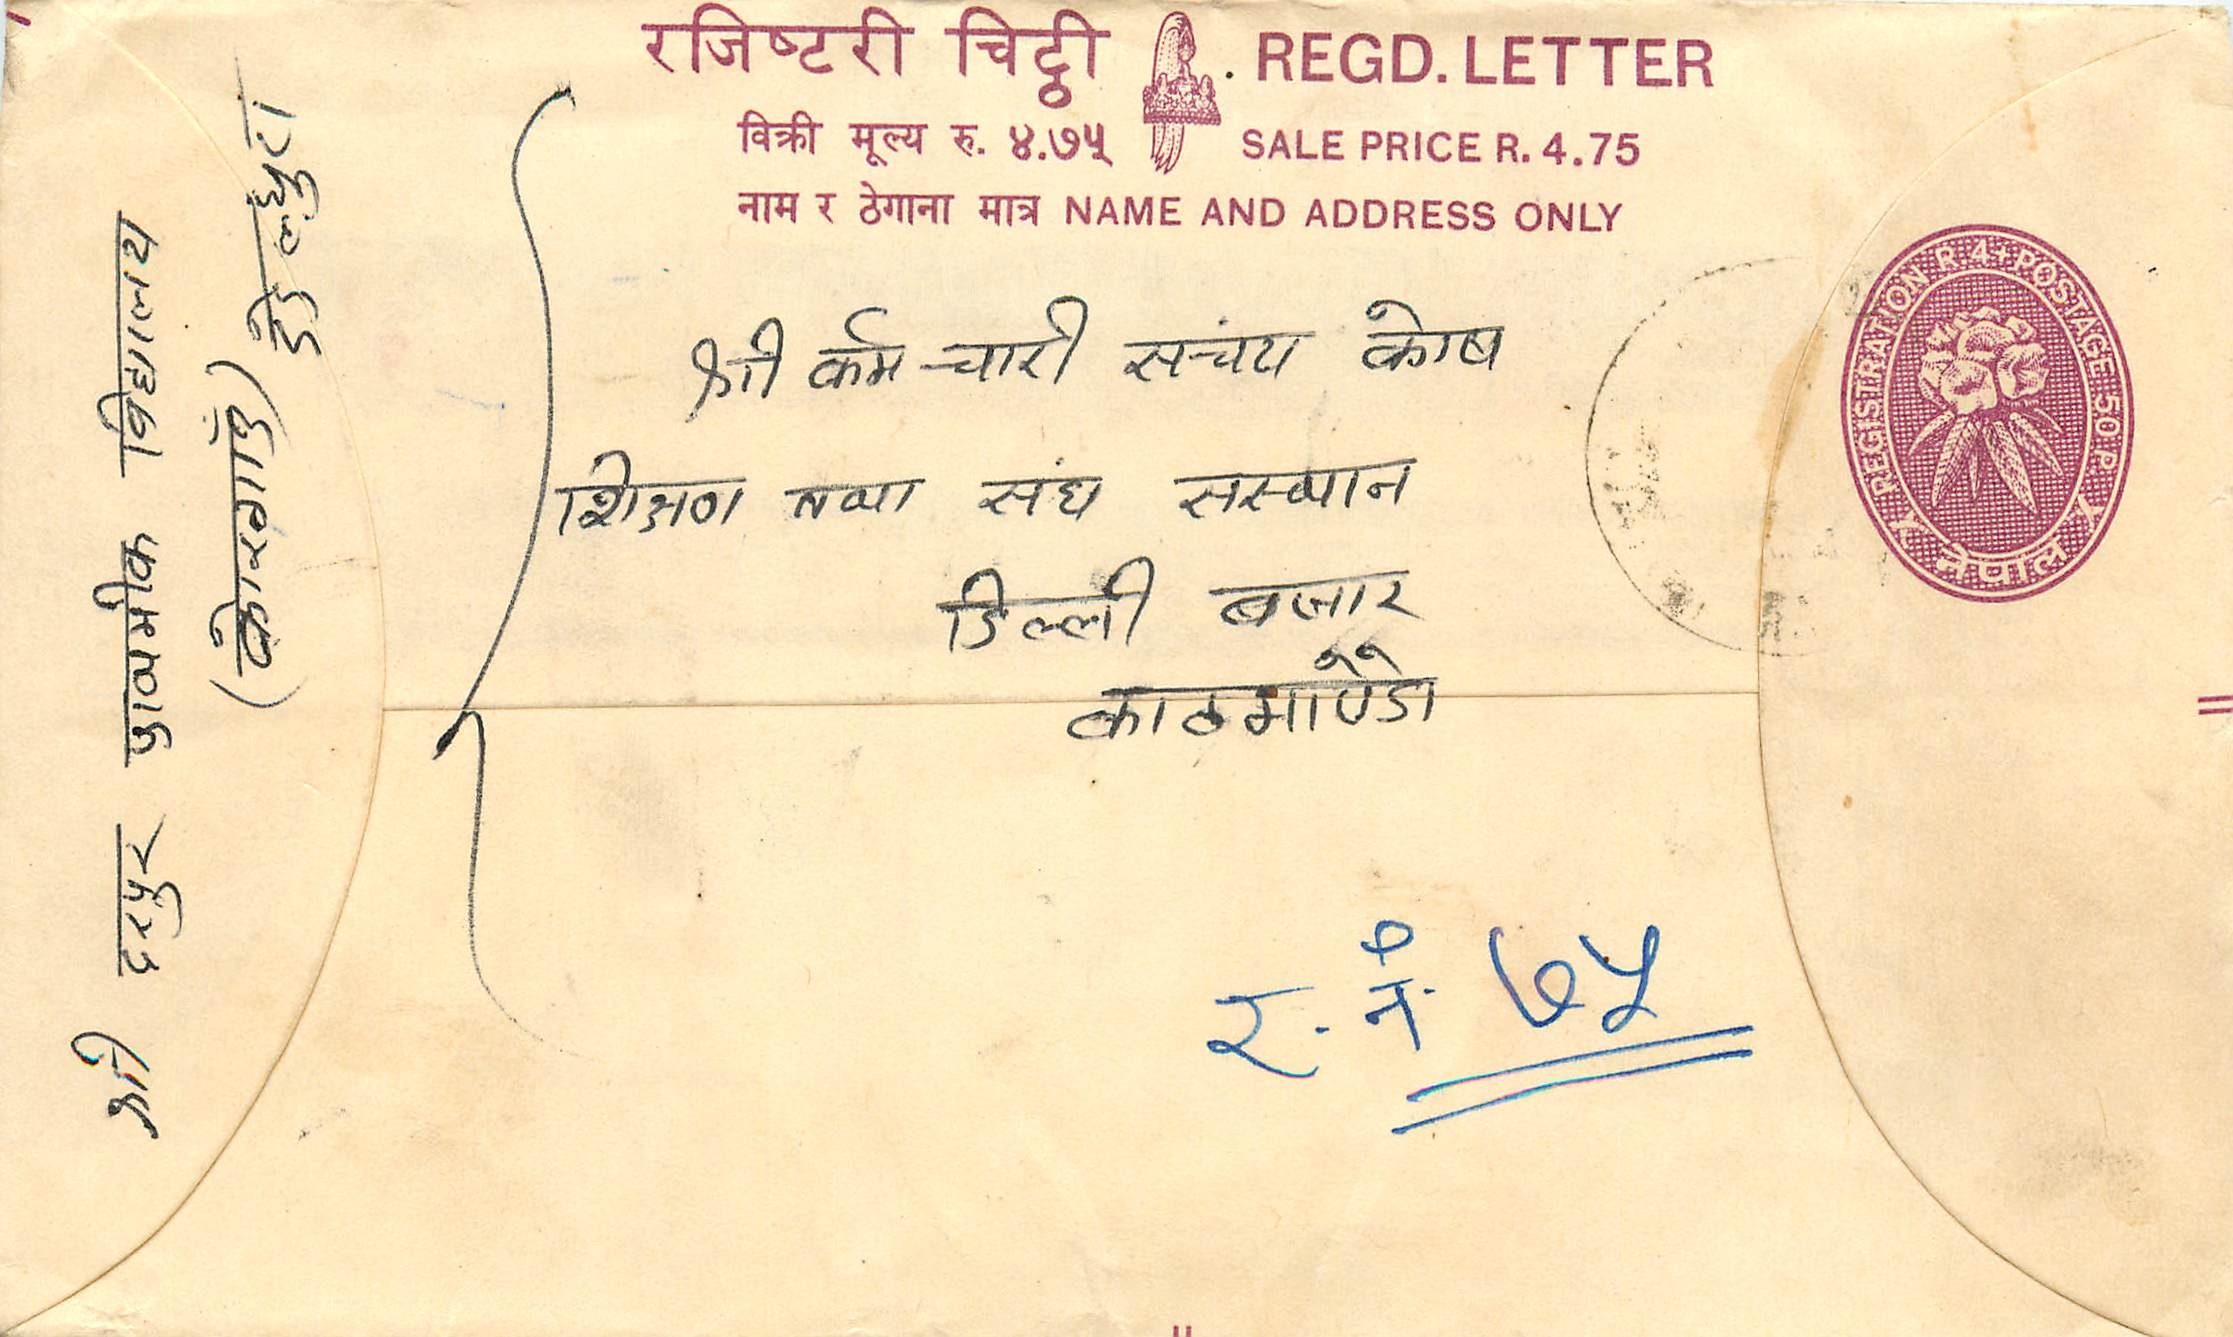 रजिष्टरी चिट्ठी REGD. LETTER
विक्री मूल्य रु. ४.७५ SALE PRICE R. 4.75
नाम र ठेगाना मात्र NAME AND ADDRESS ONLY
REGISTRATION R 4+POSTAGE 50 P.
नेपाल
श्री कर्मचारी सचंय कोष
शिक्षण तथा संघ सस्थान
डिल्ली बजार
काठमाण्डौं
र. नं. ७५
श्री दरपुर प्राथमीक विद्यालय
(कोरगाउँ)